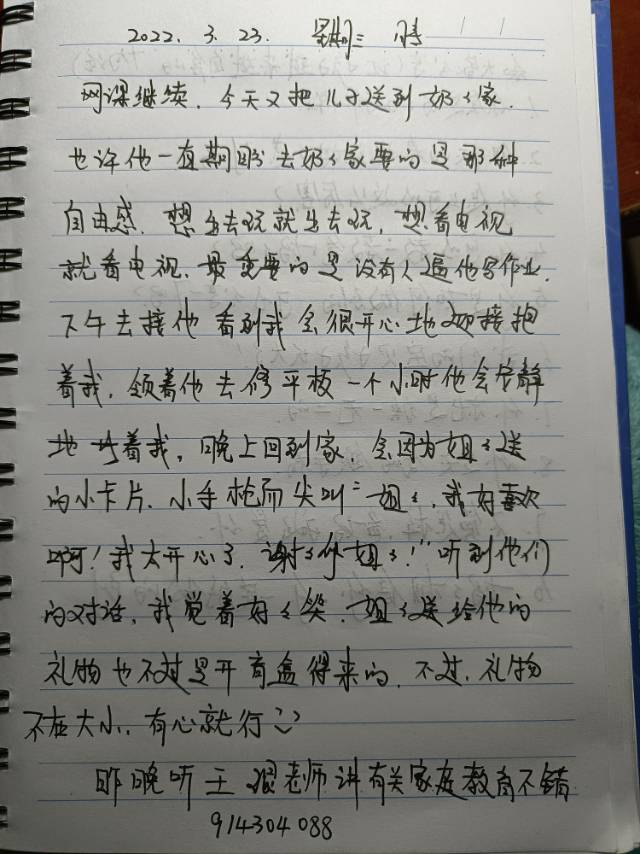 2022. 3. 23. 星期三 晴
网课继续. 今天又把儿子送到奶奶家.
也许他一直期盼去奶奶家要的是那种
自由感. 想出去玩就出去玩, 想看电视
就看电视. 最重要的是没有人逼他写作业.
下午去接他看到我会很开心地迎接抱
着我, 领着他去修平板一个小时他会安静
地 着我, 晚上回到家, 会因为姐姐送
的小卡片、小手枪而尖叫:"姐姐, 我好喜欢
啊! 我太开心了, 谢谢你姐姐!"听到他们
的对话, 我觉着好好笑, 姐姐送给他的
礼物也不过是开盲盒得来的, 不过, 礼物
不在大小, 有心就行
昨晚听王 老师讲有关家庭教育不错
914304088